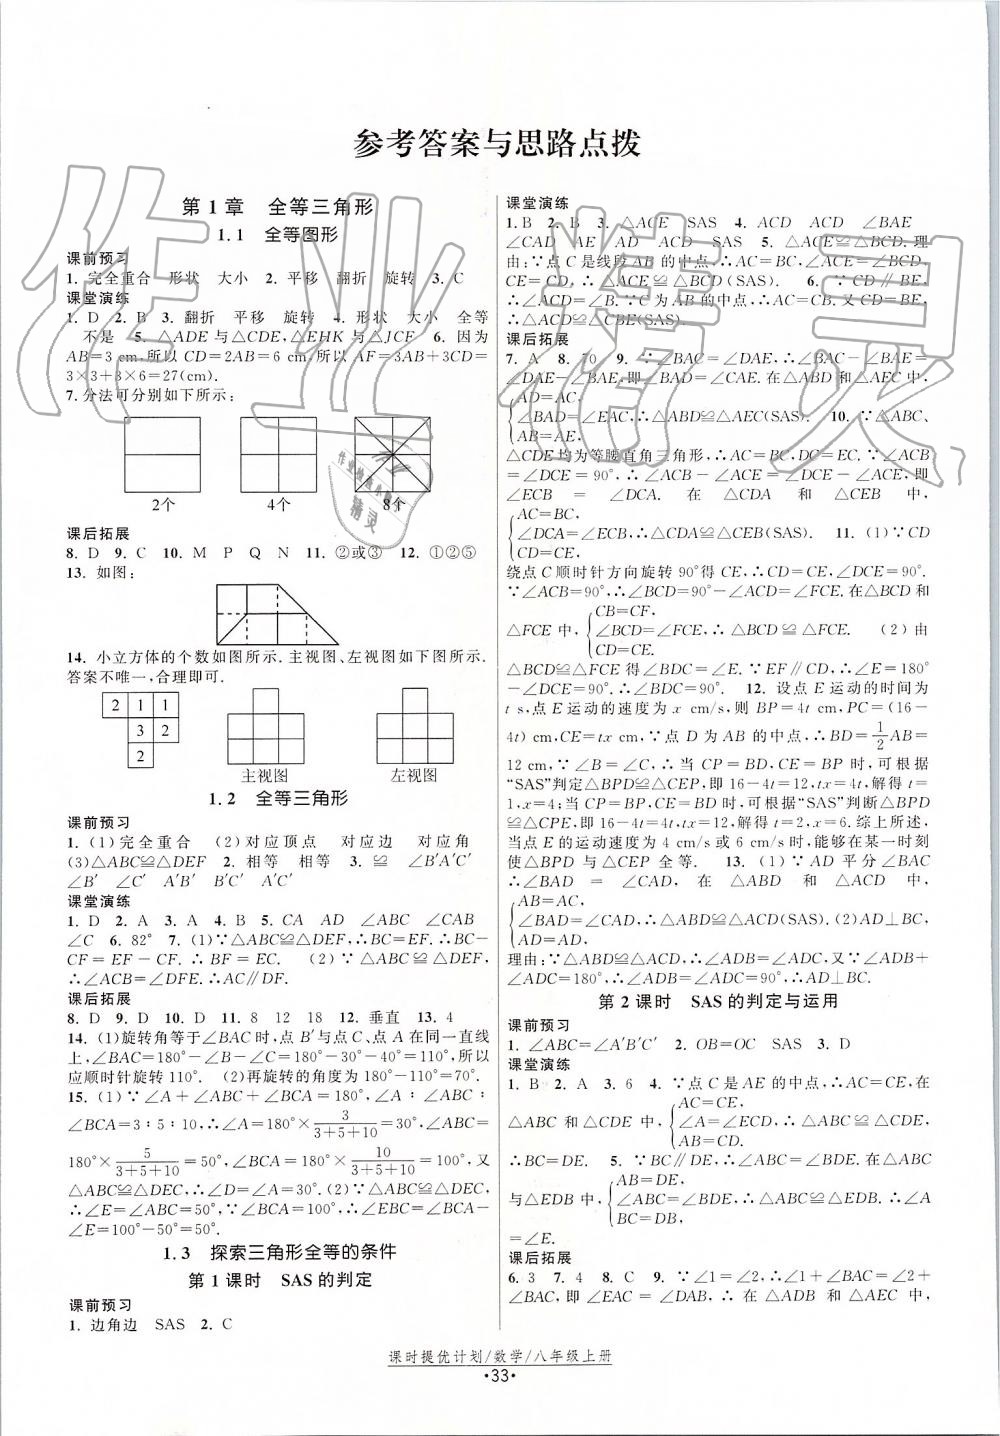 参考答案与思路点拨
第1章 全等三角形
1.1 全等图形
课前预习
1. 完全重合 形状 大小 2. 平移 翻折 旋转 3. C
课堂演练
1. D 2. B 3. 翻折 平移 旋转 4. 形状 大小 全等
不是 5. △ADE与△CDE,△EHK与△JCF 6. 因为
AB=3 cm,所以CD=2AB=6 cm,所以AF=3AB+3CD=
3×3+3×6=27(cm).
7. 分法可分别如下所示:
2个 4个 8个
课后拓展
8. D 9. C 10. M P Q N 11. ②或③ 12. ①②⑤
13. 如图:
14. 小立方体的个数如图所示. 主视图、左视图如下图所示.
答案不唯一,合理即可.
2 1 1
3 2
2
主视图 左视图
1.2 全等三角形
课前预习
1. (1)完全重合 (2)对应顶点 对应边 对应角
(3)△ABC≌△DEF 2. 相等 相等 3. ≌ ∠B′A′C′
∠B′ ∠C′ A′B′ B′C′ A′C′
课堂演练
1. D 2. A 3. A 4. B 5. CA AD ∠ABC ∠CAB
∠C 6. 82° 7. (1)∵△ABC≌△DEF,∴BC=EF. ∴BC-
CF=EF-CF. ∴BF=EC. (2)∵△ABC≌△DEF,
∴∠ACB=∠DFE. ∴AC∥DF.
课后拓展
8. D 9. D 10. D 11. 8 12 18 12. 垂直 13. 4
14. (1)旋转角等于∠BAC时,点B′与点C、点A在同一直线
上,∠BAC=180°-∠B-∠C=180°-30°-40°=110°,所以
应顺时针旋转110°. (2)再旋转的角度为180°-110°=70°.
15. (1)∵∠A+∠ABC+∠BCA=180°,∠A∶∠ABC∶
∠BCA=3∶5∶10,∴∠A=180°×3/(3+5+10)=30°,∠ABC=
180°×5/(3+5+10)=50°,∠BCA=180°×10/(3+5+10)=100°,又
△ABC≌△DEC,∴∠D=∠A=30°. (2)∵△ABC≌△DEC,
∴∠E=∠ABC=50°,∵∠BCA=100°,∴∠EBC=∠BCA-
∠E=100°-50°=50°.
1.3 探索三角形全等的条件
第1课时 SAS的判定
课前预习
1. 边角边 SAS 2. C
课堂演练
1. B 2. B 3. △ACE SAS 4. ACD ACD ∠BAE
∠CAD AE AD SAS 5. △ACE≌△BCD. 理
由:∵点C是线段AB的中点,∴AC=BC,∠ACE=∠BCD,
CE=CD,∴△ACE≌△BCD. 6. ∵CD∥BE,
∴∠ACD=∠B. ∵C为AB的中点,∴AC=CB. 又CD=BE,
∴△ACD≌△CBE(SAS)
课后拓展
7. A 8. 70 9. ∵∠BAC=∠DAE,∴∠BAC-∠BAE
=∠DAE-∠BAE,即∠BAD=∠CAE. 在△ABD和△AEC中,
AD=AC,
∠BAD=∠EAC,∴△ABD≌△AEC(SAS). 10. ∵△ABC、
AB=AE,
△CDE均为等腰直角三角形,∴AC=BC,DC=EC. ∵∠ACB
=∠DCE=90°,∴∠ACB-∠ACE=∠DCE-∠ACE,即
∠ECB=∠DCA. 在△CDA和△CEB中,
AC=BC,
∠DCA=∠ECB,∴△CDA≌△CEB(SAS). 11. (1)∵CD
CD=CE,
绕点C顺时针方向旋转90°得CE,∴CD=CE,∠DCE=90°.
∵∠ACB=90°,∴∠BCD=90°-∠ACD=∠FCE. 在△BCD和
CB=CF,
△FCE中,∠BCD=∠FCE,∴△BCD≌△FCE. (2)由
CD=CE.
△BCD≌△FCE得∠BDC=∠E. ∵EF∥CD,∴∠E=180°
-∠DCE=90°. ∴∠BDC=90°. 12. 设点E运动的时间为
t s,点E运动的速度为x cm/s,则BP=4t cm,PC=(16-
4t) cm,CE=tx cm,∵点D为AB的中点,∴BD=1/2AB=
12 cm,∵∠B=∠C,∴当CP=BD,CE=BP时,可根据
“SAS”判定△BPD≌△CEP,即16-4t=12,tx=4t,解得t=
1,x=4;当CP=BP,CE=BD时,可根据“SAS”判断△BPD
≌△CPE,即16-4t=4t,tx=12,解得t=2,x=6. 综上所述,
当点E的运动速度为4 cm/s或6 cm/s时,能够在某一时刻
使△BPD与△CEP全等. 13. (1)∵AD平分∠BAC
∴∠BAD=∠CAD,在△ABD和△ACD中,
AB=AC,
∠BAD=∠CAD,∴△ABD≌△ACD(SAS). (2)AD⊥BC,
AD=AD,
理由:∵△ABD≌△ACD,∴∠ADB=∠ADC,又∵∠ADB+
∠ADC=180°,∴∠ADB=∠ADC=90°,∴AD⊥BC.
第2课时 SAS的判定与运用
课前预习
1. ∠ABC=∠A′B′C′ 2. OB=OC SAS 3. D
课堂演练
1. B 2. A 3. 6 4. ∵点C是AE的中点,∴AC=CE,在
AC=CE,
△ABC和△CDE中,∠A=∠ECD,∴△ABC≌△CDE,
AB=CD.
∴BC=DE. 5. ∵BC∥DE,∴∠ABC=∠BDE. 在△ABC
AB=DE,
与△EDB中,∠ABC=∠BDE,∴△ABC≌△EDB. ∴∠A
BC=DB,
=∠E.
课后拓展
6. 3 7. 4 8. C 9. ∵∠1=∠2,∴∠1+∠BAC=∠2+
∠BAC,即∠EAC=∠DAB,∴在△ADB和△AEC中,
课时提优计划/数学/八年级上册
·33·
作业精灵